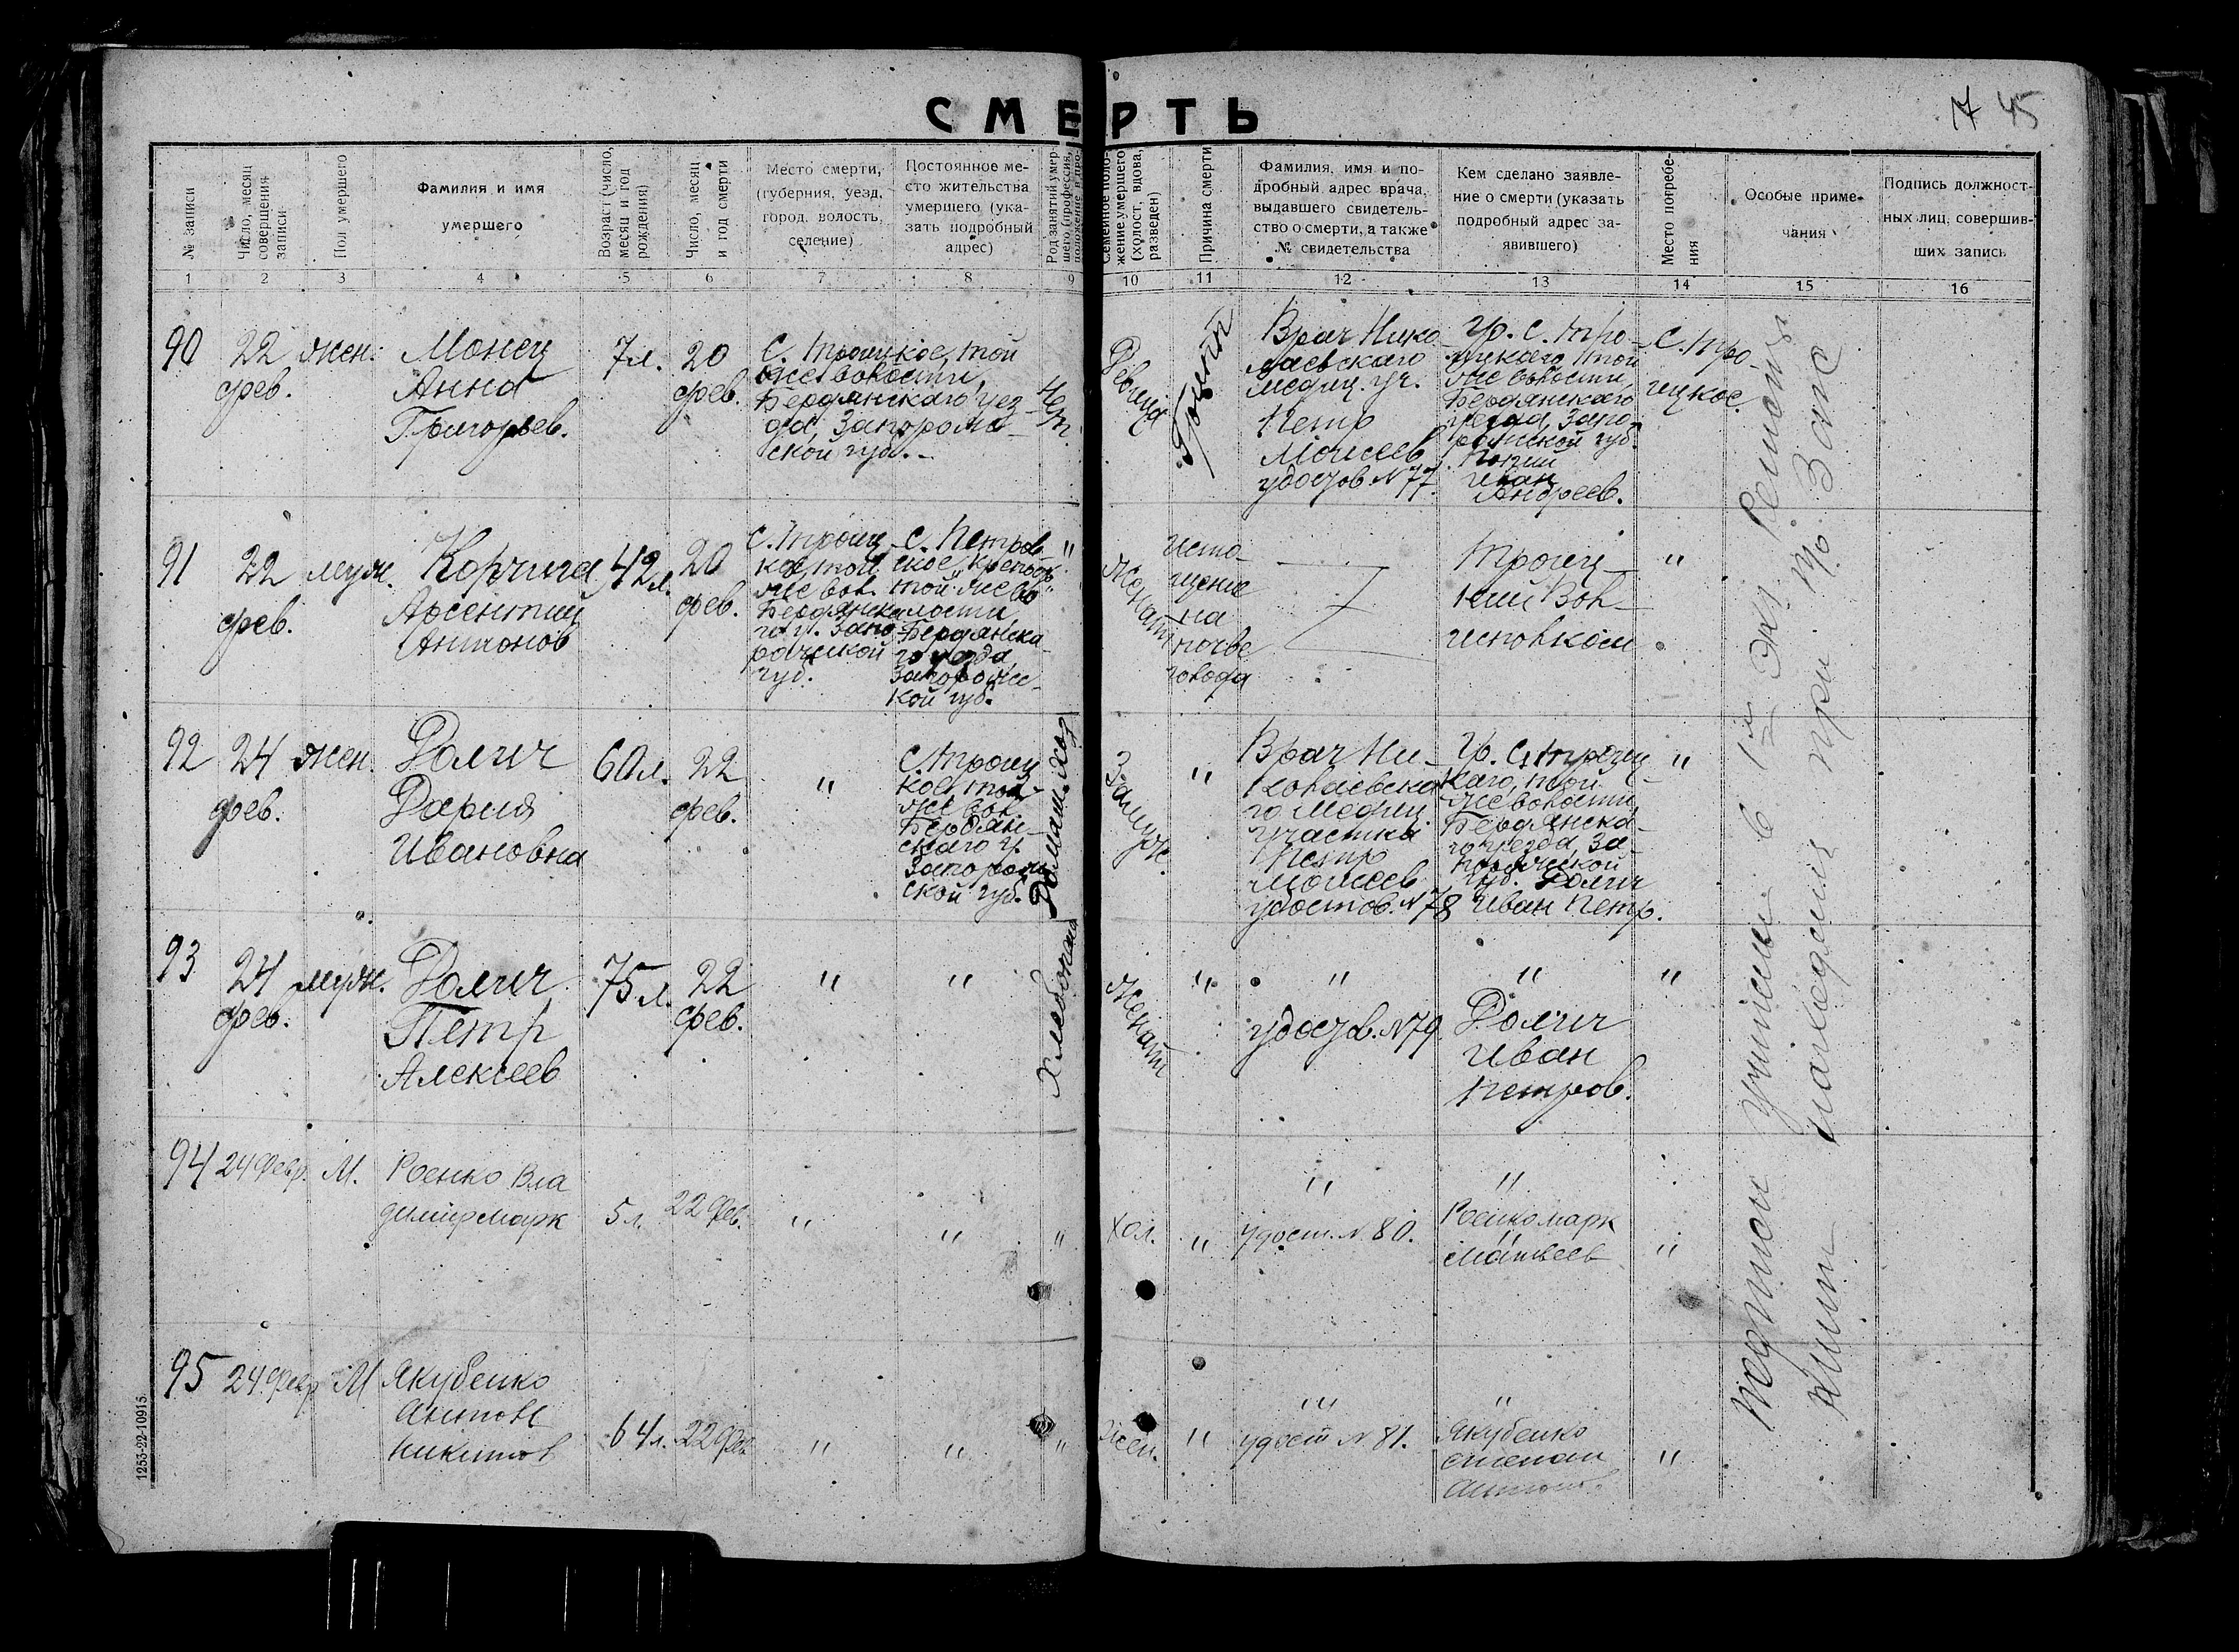 СМЕРТЬ
45
№ записи
Число, месяц совершения записи
Пол умершего
Фамилия и имя
умершего
Возраст (число, месяц и год рождения)
Число, месяц и год смерти
Место смерти,
(губерния, уезд,
город, волость,
селение)
Постоянное ме-
сто жительства
умершего (ука-
зать подробный
адрес)
Род занятий умер-
шего (профессия,
положение в про-
Семейное поло-
жение умершего
(холост, вдова,
разведен)
Причина смерти
Фамилия, имя и по-
дробный адрес врача,
выдавшего свидетель-
ство о смерти, а также
№ свидетельства
Кем сделано заявле-
ние о смерти (указать
подробный адрес за-
явившего)
Место погребе-
ния
Особые приме-
чания
Подпись должност-
ных лиц, совершив-
ших запись
1 2 3 4 5 6 7 8 9 10 11 12 13 14 15 16
90
22
фев.
жен.
Анна
Григорьев.
7 л.
20
фев.
С. Троицкое, той
же волости,
Бердянского уез-
да, Запорож-
ской губ.
Врач Нико-
лаевского
медиц. уч.
Петр
Моисеев
удостов. N 77.
Гр. С. Тро-
ицкого, той
же волости,
Бердянского
уезда, Запо-
рожской губ.
Иван
Андреев.
С. Тро
ицкое.
91
22
фев.
муж.
Арсентий
Антонов
42 л.
20
фев.
С. Троиц-
кое, той
же вол.
Бердянско
го у. Запо-
рожской
губ.
С. Петров-
ское,
той же во
лости,
Бердянска-
го уезда
Запорожс-
кой губ.
"
Женат
Исто-
щение
на
почве
голода
Троиц-
кий Вол-
исполком
"
92
24
фев.
жен.
Долгич
Дария
Ивановна
60 л.
22
фев.
"
С Троиц
кое, той
же вол
Бердян-
скаго у.
Запорож
ской губ.
Домаш. хоз
Замуж.
"
Врач Ни-
колаевска
го медиц.
участка
Петр
Моисеев
удостов. N 78
Гр. С. Троиц-
каго, той
же волости,
Бердянска-
го уезда, За-
порожской
губ. Долгич
Иван Петр.
"
93
24
фев.
муж.
Долгич
Петр
Алексеев
75 л.
22
фев.
"
"
Женат
"
"
удостов. N 79.
"
Долгич
Иван
Петров.
"
94
24 февр.
М.
Роенко Вла
димир Марк
5 л.
22 фев.
"
"
"
Хол.
"
"
удост. N 80.
"
Роенко Марк
Матвеев
"
95
24 февр
М
Якубенко
Антон
Никитов
64 л.
22 фев
"
"
"
Жен.
"
"
удост N 81.
"
Якубенко
Степан
Антонов.
"
1253-22-10915.